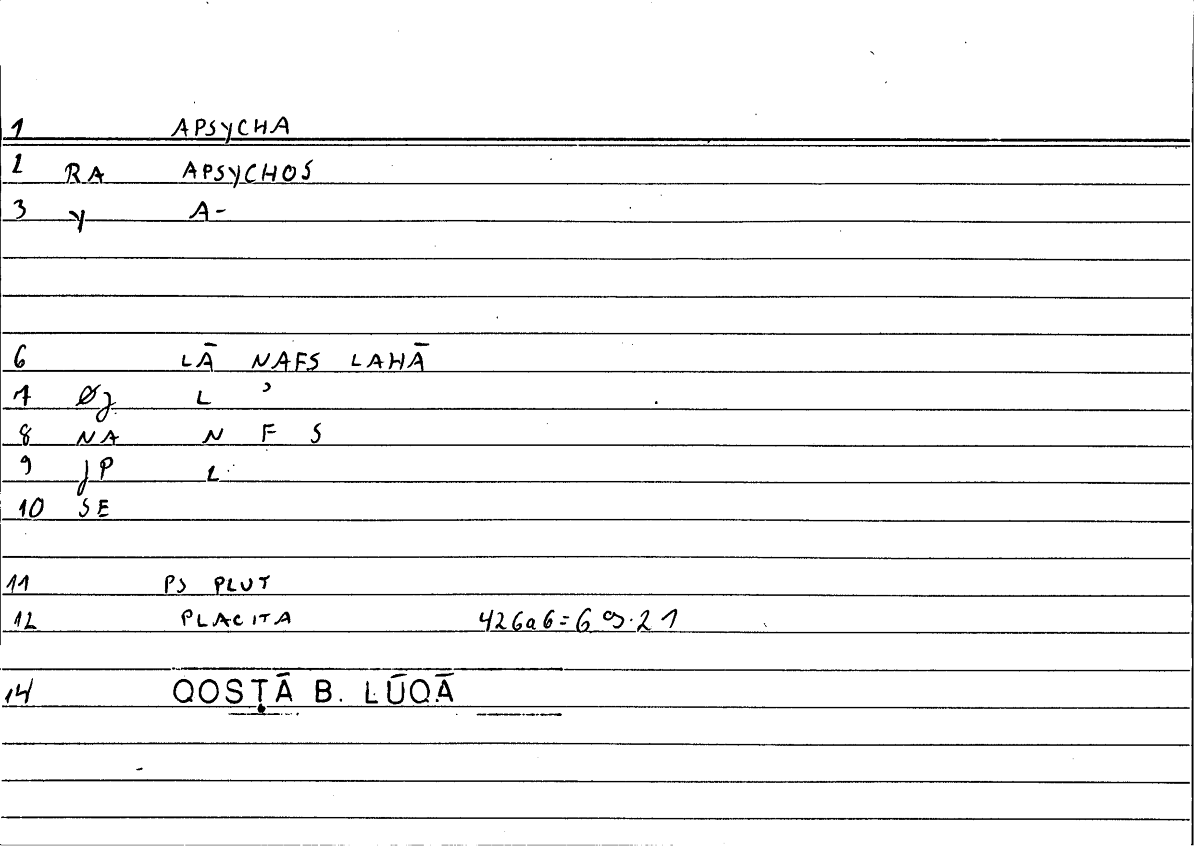 1 APSYCHA
2 RA APSYCHOS
3 Y A-
6 LĀ NAFS LAHĀ
7 ØJ L ʾ
8 NA N F S
9 JP L
10 SE
11 PS PLUT
12 PLACITA 426a6=69.21
14 QOSṬĀ B. LŪQĀ